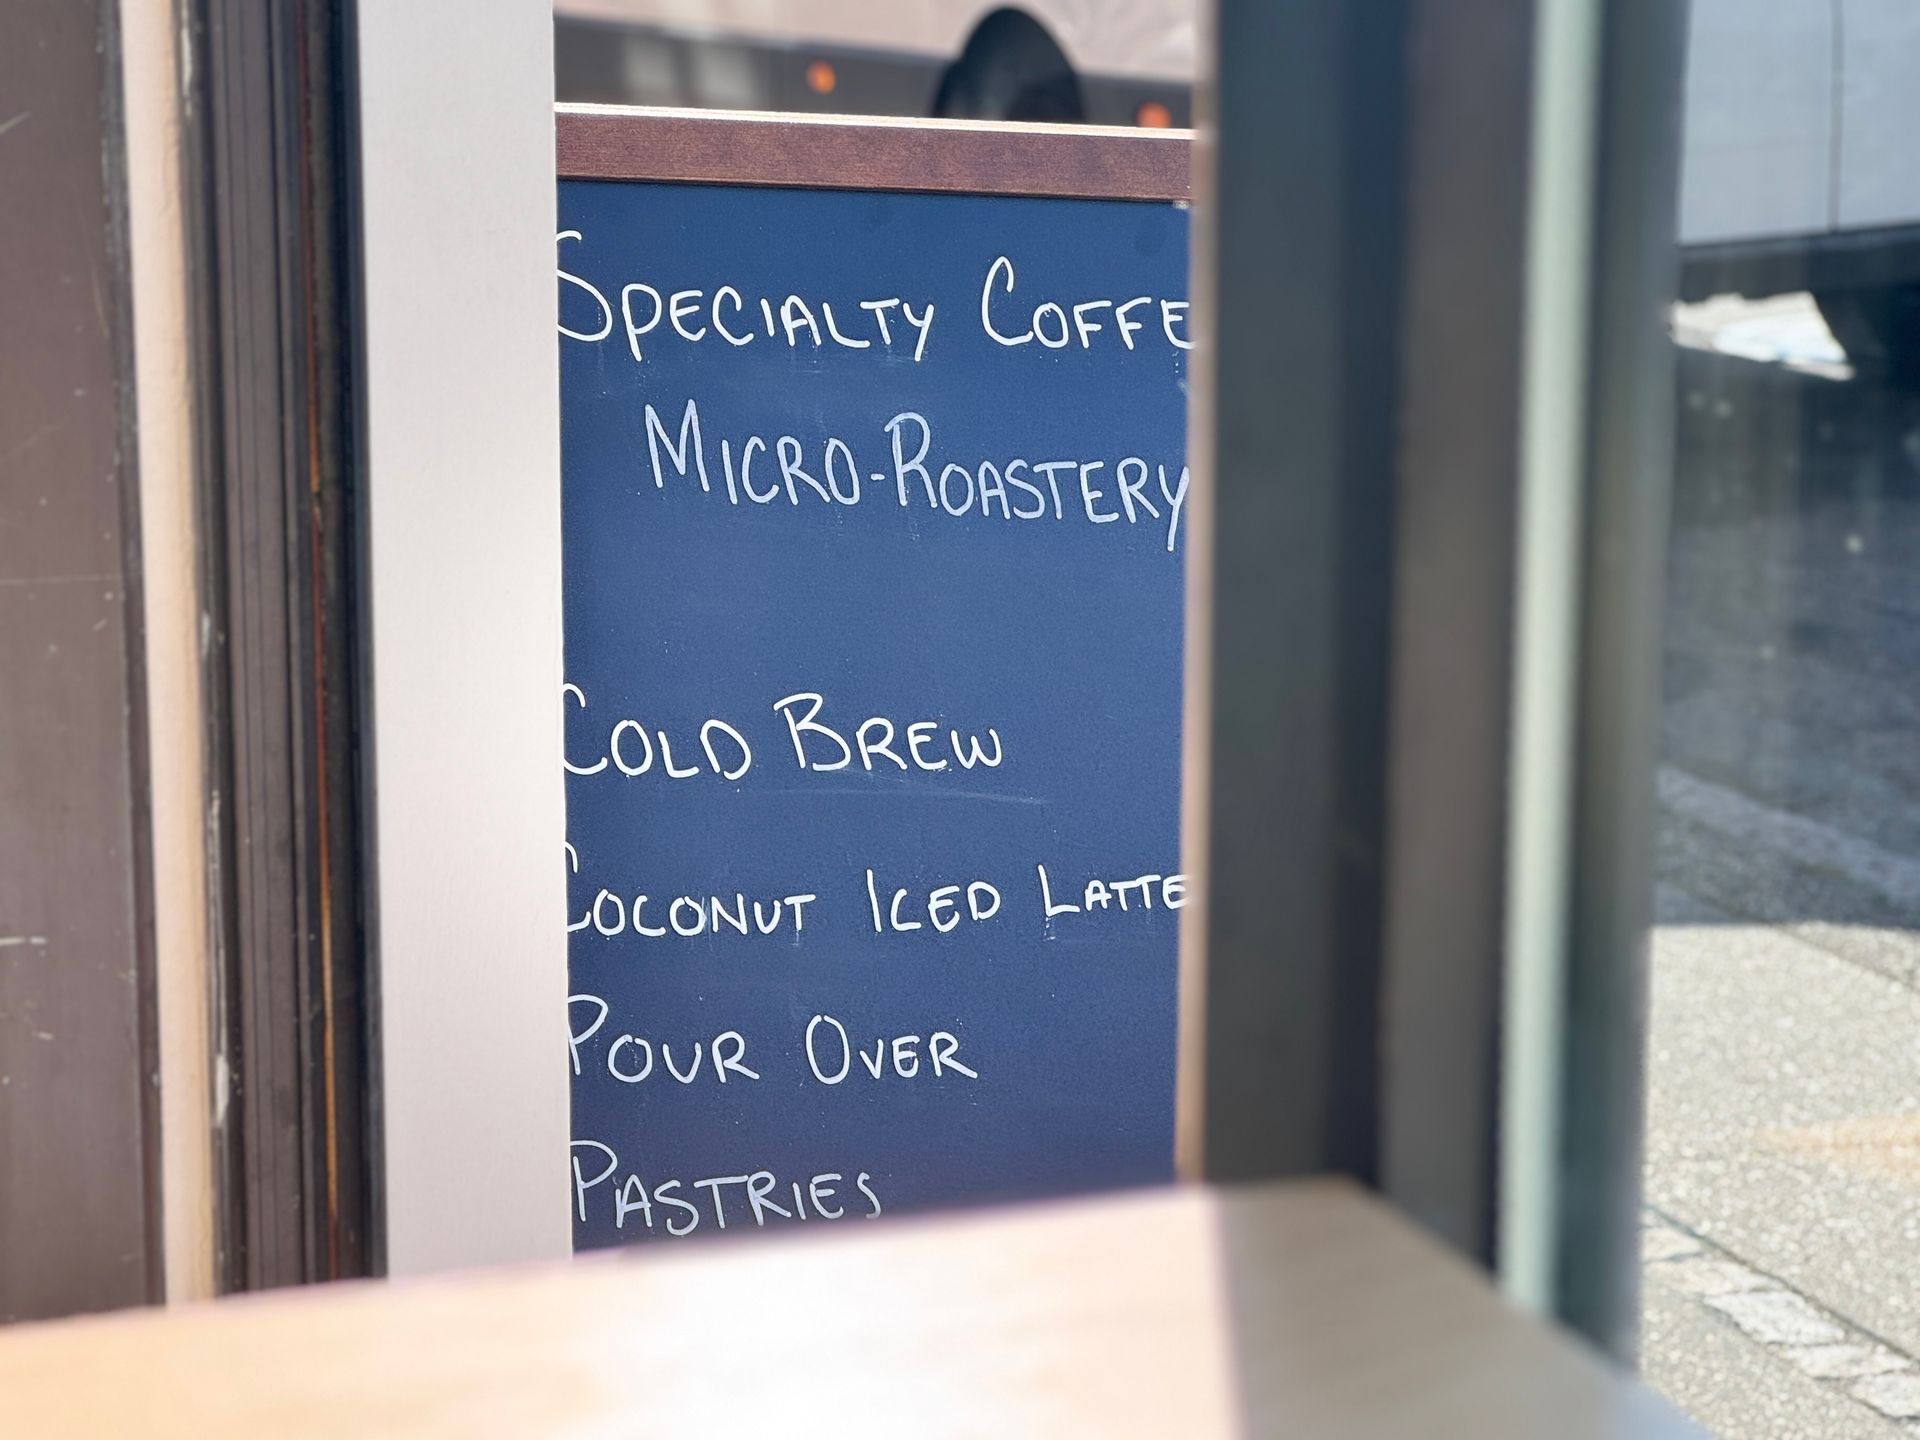 SPECIALTY COFFE
MICRO-ROASTERY
COLD BREW
COCONUT ICED LATTE
POUR OVER
PASTRIES